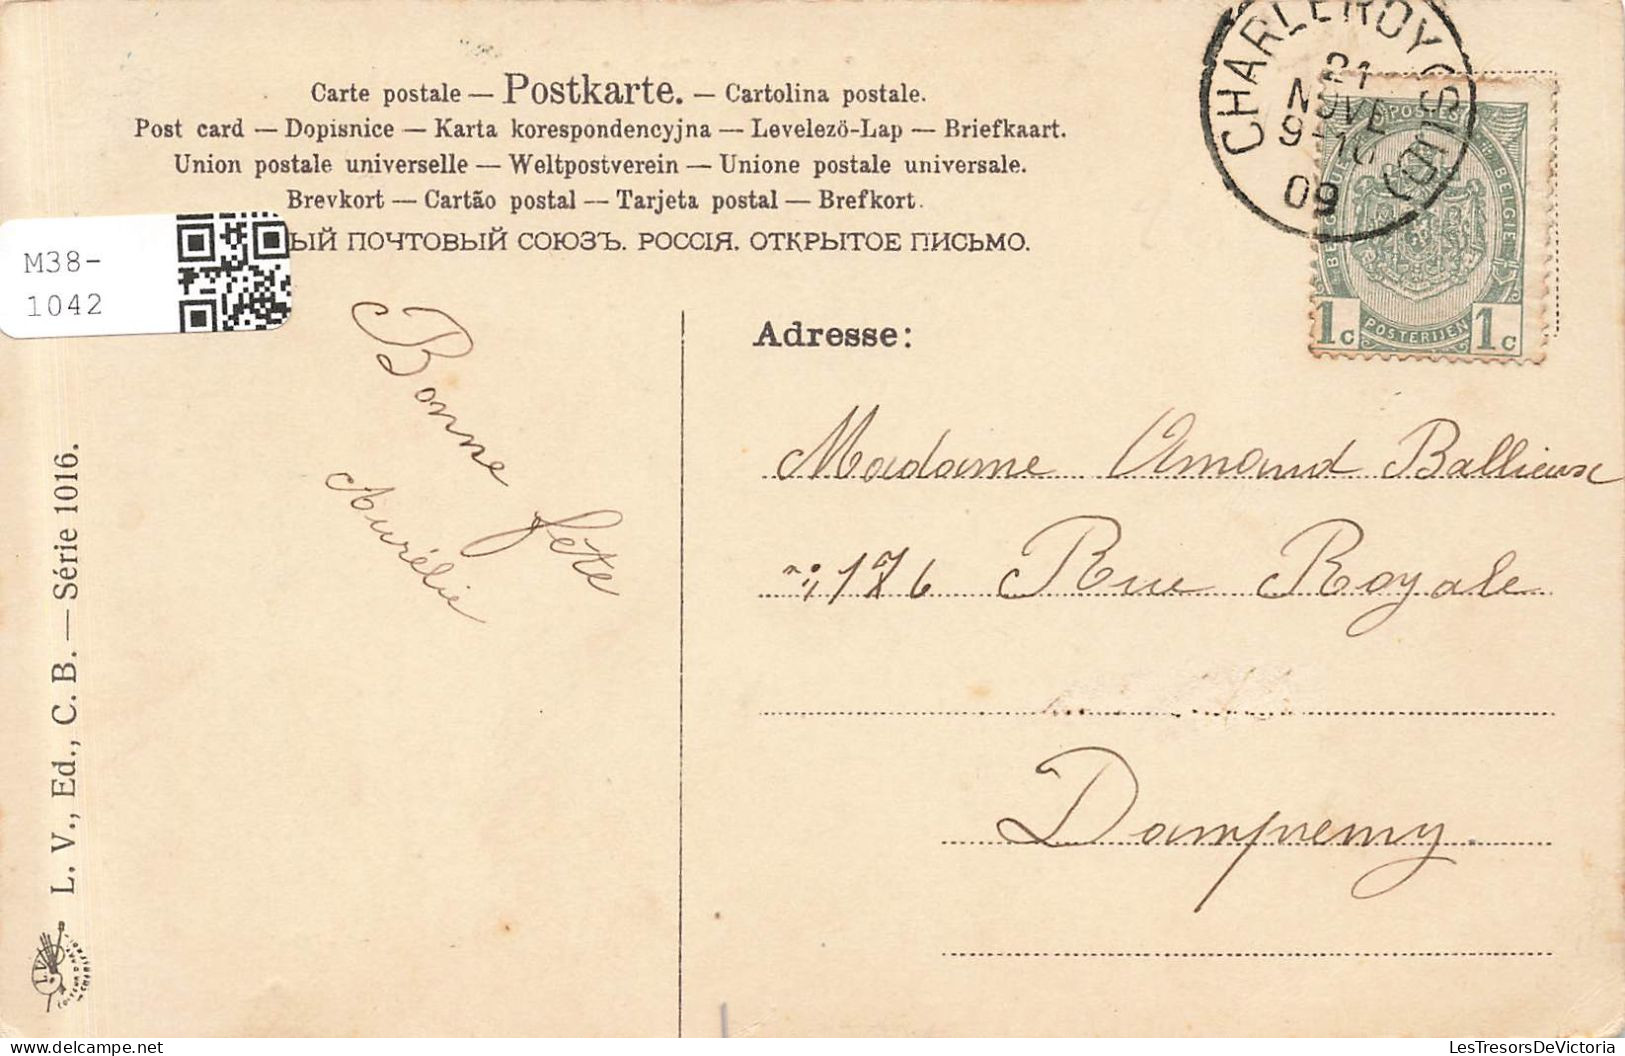 Carte postale — Postkarte. — Cartolina postale.
Post card — Dopisnice — Karta korespondencyjna — Levelezö-Lap — Briefkaart.
Union postale universelle — Weltpostverein — Unione postale universale.
Brevkort — Cartão postal — Tarjeta postal — Brefkort.
ый почтовый союзъ. Россія. Открытое письмо.
M38-
1042
CHARLEROY (SUD)
21
NOVE
9-10
09
POSTES
BELGIQUE
BELGIE
1c POSTERIJEN 1c
Bonne fête
Aurélie
Adresse:
Madame Amand Ballieux
176 Rue Royale
Dampremy.
L. V., Ed., C. B. — Série 1016.
L.V
LesTresorsDeVictoria